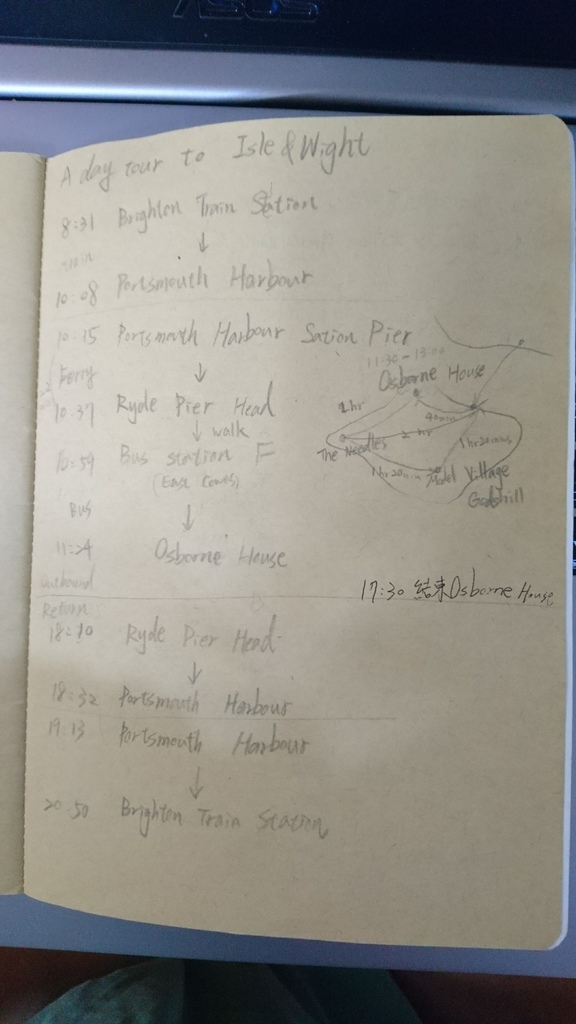 ASUS
A day tour to Isle of Wight
8:31 Brighton Train Station
↓
10:08 Portsmouth Harbour
10:15 Portsmouth Harbour Sation Pier
Ferry ↓
10:37 Ryde Pier Head
↓ walk
10:59 Bus station F
(East Cowes)
Bus ↓
11:24 Osborne House
Outbound
11:30 - 13:00
Osborne House
1 hr
40min
2 hr
The Needles
1hr20mins
1hr20min
Model Village
Godshill
17:30 結束Osborne House
Return
18:10 Ryde Pier Head
↓
18:32 Portsmouth Harbour
19:13 Portsmouth Harbour
↓
20:50 Brighton Train Station